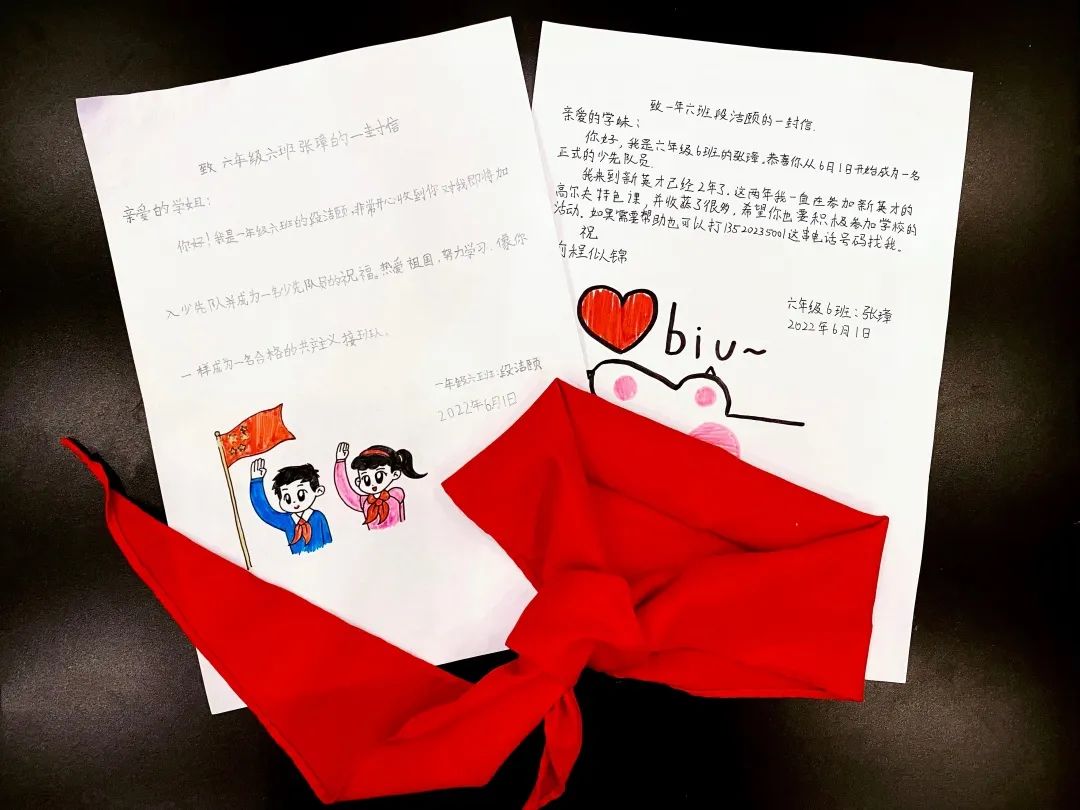 致 六年级六班张璋的一封信
亲爱的学姐：
你好！我是一年级六班的段洁颐，非常开心收到你对我即将加
入少先队并成为一名少先队员的祝福。热爱祖国，努力学习，像你
一样成为一名合格的共产主义接班人。
一年级六班：段洁颐
2022年6月1日
致一年六班段洁颐的一封信.
亲爱的学妹：
你好，我是六年级6班的张璋。恭喜你从6月1日开始成为一名
正式的少先队员.
我来到新英才已经2年了.这两年我一直在参加新英才的
高尔夫特色课，并收获了很多，希望你也要积极参加学校的
活动.如果需要帮助也可以打13520235001这串电话号码找我。
祝
前程似锦
六年级6班：张璋
2022年6月1日
biu~